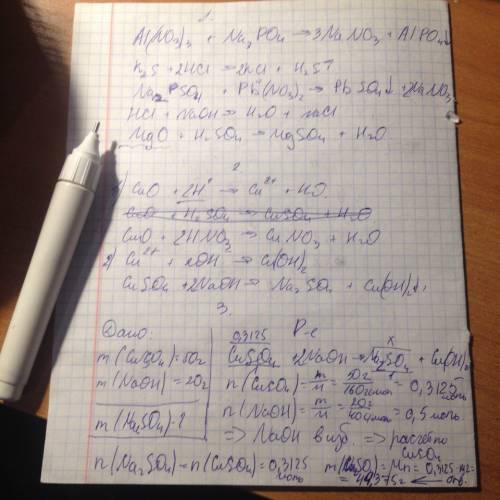 1.
Al(NO3)3 + Na3PO4 → 3NaNO3 + AlPO4↓
K2S + 2HCl → 2KCl + H2S↑
Na2SO4 + Pb(NO3)2 → PbSO4↓ + 2NaNO3
HCl + NaOH → H2O + NaCl
MgO + H2SO4 → MgSO4 + H2O
2
1) CuO + 2H⁺ → Cu²⁺ + H2O
CuO + H2SO4 → CuSO4 + H2O
CuO + 2HNO3 → CuNO3 + H2O
2) Cu²⁺ + 2OH → Cu(OH)2
CuSO4 + 2NaOH → Na2SO4 + Cu(OH)2↓
3.
Дано:
m(CuSO4) = 50г
m(NaOH) = 20г
m(Na2SO4) - ?
Р-е
0,3125 x
CuSO4 + 2NaOH → Na2SO4 + Cu(OH)2
n(CuSO4) = m/M = 50г/160г/моль = 0,3125 моль
n(NaOH) = m/M = 20г/40г/моль = 0,5 моль
=> NaOH в изб. => расчёт по CuSO4
n(Na2SO4) = n(CuSO4) = 0,3125 моль
= 44,375г ← отв.